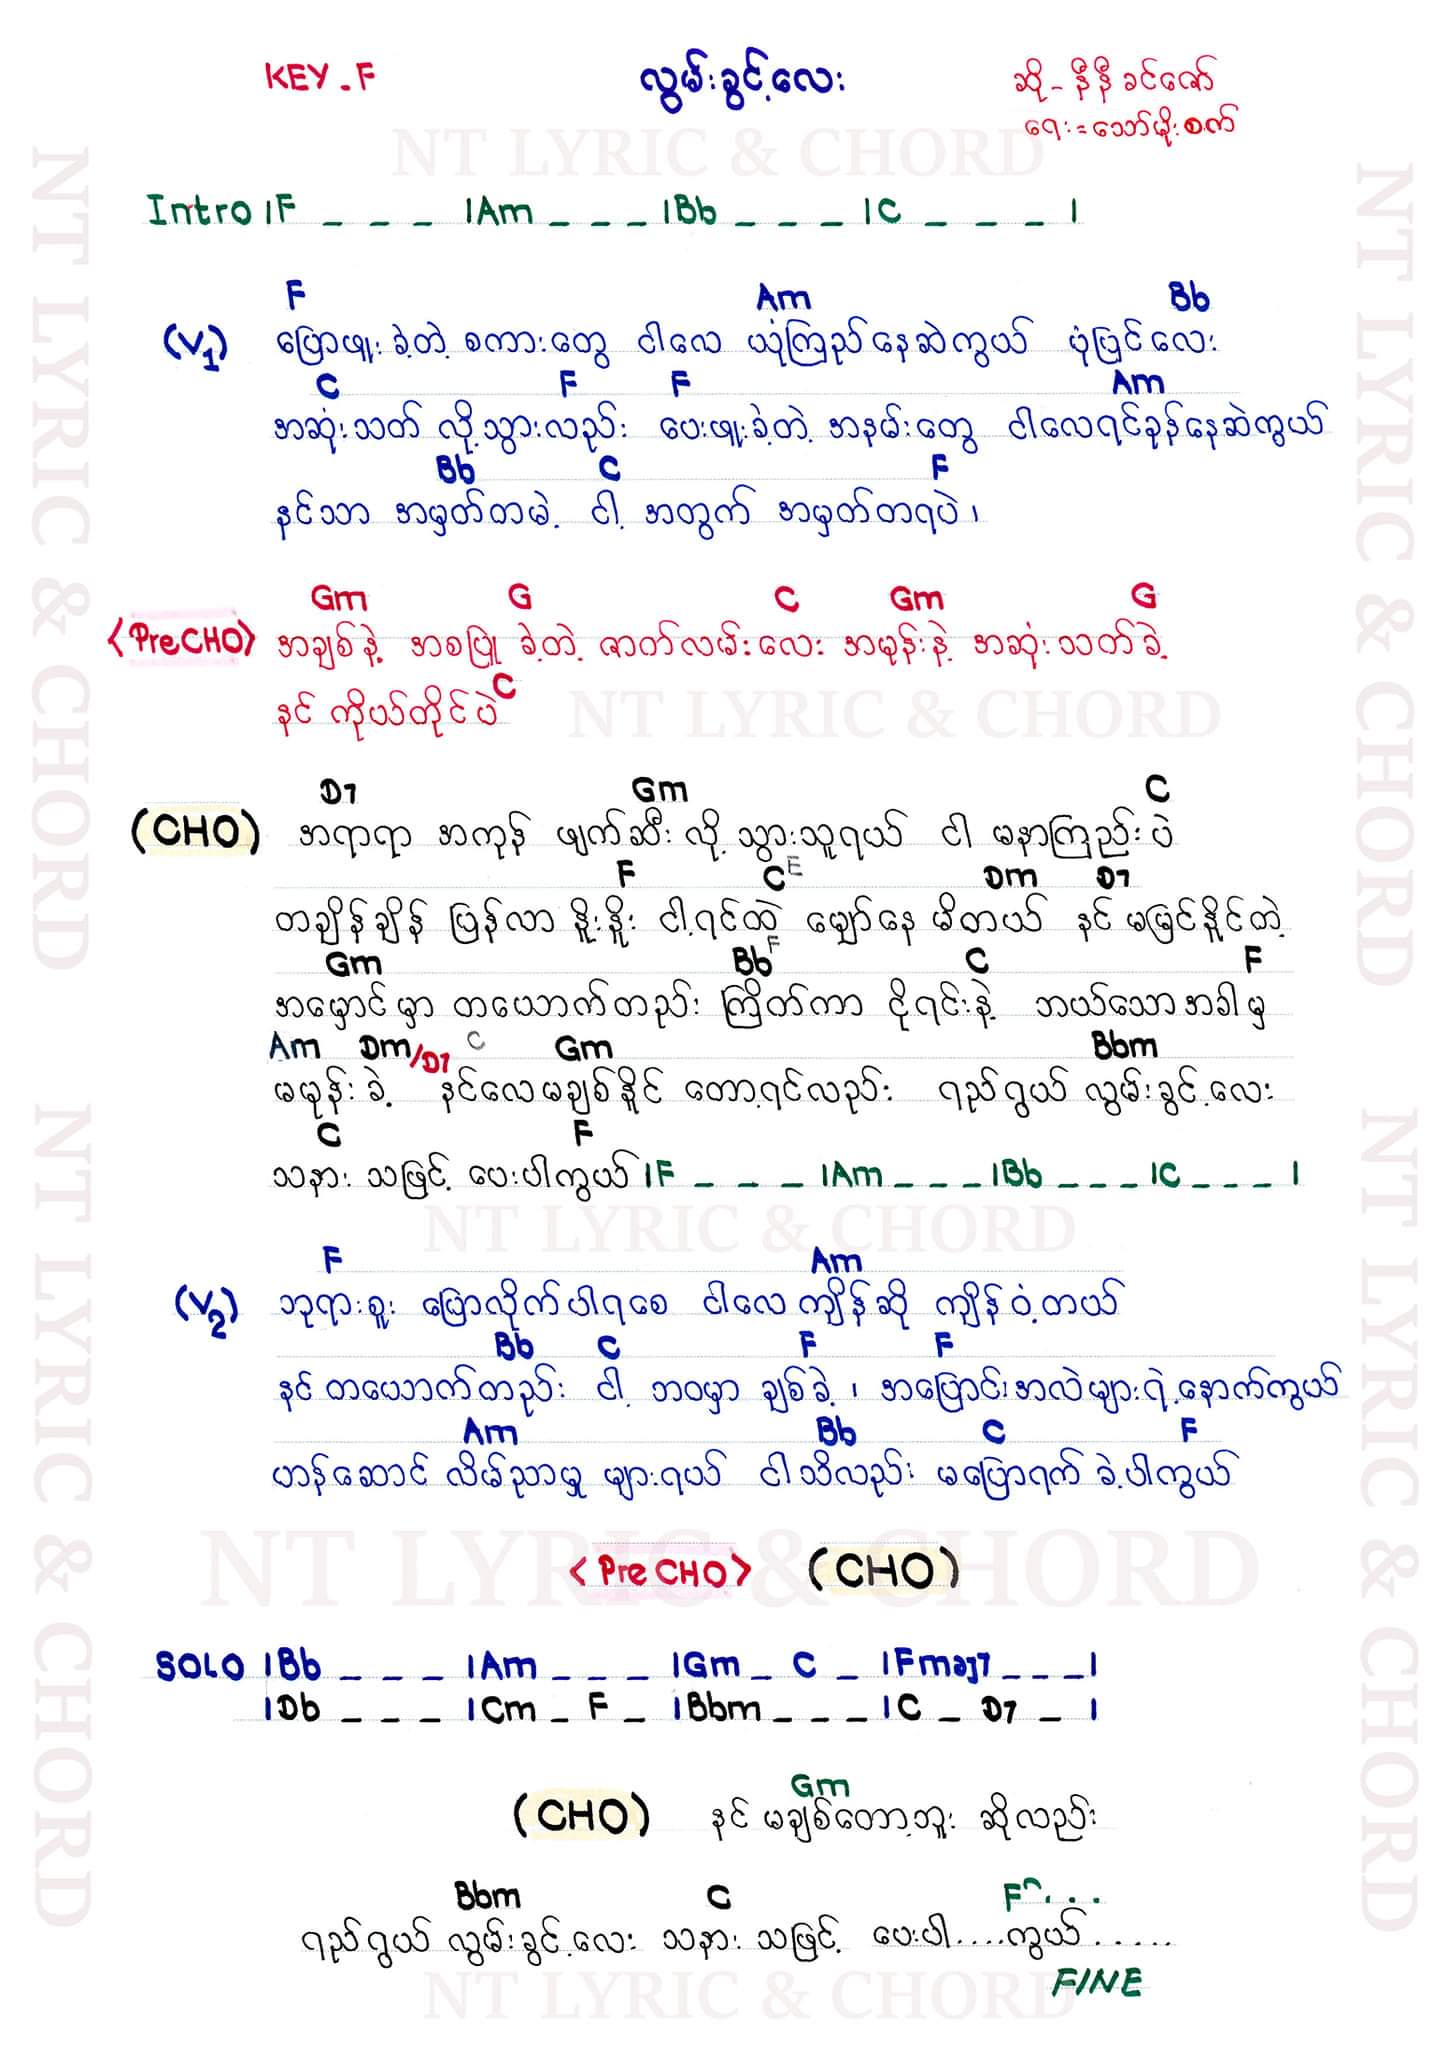 KEY-F လွမ်းခွင့်လေး ဆို - နီနီခင်ဇော်
ရေး = သော်မိုးစက်
NT LYRIC & CHORD
Intro |F _ _ _ |Am _ _ _ |Bb _ _ _ |C _ _ _ |
F Am Bb
(V1) ပြောဖူးခဲ့တဲ့ စကားတွေ ငါလေ ယုံကြည်နေဆဲကွယ် ပုံပြင်လေး
C F F Am
အဆုံးသတ် လို့သွားလည်း ပေးဖူးခဲ့တဲ့ အနမ်းတွေ ငါလေရင်ခုန်နေဆဲကွယ်
Bb C F
နင်သာ အမှတ်တမဲ့ ငါ့ အတွက် အမှတ်တရပဲ ၊
Gm G C Gm G
<PreCHO> အချစ်နဲ့ အစပြု ခဲ့တဲ့ ဇာတ်လမ်းလေး အမုန်းနဲ့ အဆုံးသတ်ခဲ့
C
နင် ကိုယ်တိုင်ပဲ
NT LYRIC & CHORD
D7 Gm C
(CHO) အရာရာ အကုန် ဖျက်ဆီး လို့ သွားသူရယ် ငါ မနာကြည်းပဲ
F C E Dm D7
တချိန်ချိန် ပြန်လာ နိုးနိုး ငါ့ရင်ထဲ မျှော်နေ မိတယ် နင် မမြင်နိုင်တဲ့
Gm Bb F C F
အမှောင်မှာ တယောက်တည်း ကြိတ်ကာ ငိုရင်းနဲ့ ဘယ်သောအခါမှ
Am Dm/D7 C Gm Bbm
မမုန်းခဲ့ နင်လေမချစ်နိုင် တော့ရင်လည်း ရည်ရွယ် လွမ်းခွင့်လေး
C F
သနား သဖြင့် ပေးပါကွယ် |F _ _ _ |Am _ _ _ |Bb _ _ _ |C _ _ _ |
NT LYRIC & CHORD
F Am
(V2) ဘုရားစူး ပြောလိုက်ပါရစေ ငါလေ ကျိန်ဆို ကျိန်ဝံ့တယ်
Bb C F F
နင် တယောက်တည်း ငါ့ ဘဝမှာ ချစ်ခဲ့ ၊ အပြောင်းအလဲများရဲ့နောက်ကွယ်
Am Bb C F
ဟန်ဆောင် လိမ်ညာမှု များရယ် ငါသိလည်း မပြောရက် ခဲ့ပါကွယ်
NT LYRIC & CHORD
<PreCHO> (CHO)
SOLO |Bb _ _ _ |Am _ _ _ |Gm _ C _ |Fmaj7 _ _ _ |
|Db _ _ _ |Cm _ F _ |Bbm _ _ _ |C _ D7 _ |
Gm
(CHO) နင် မချစ်တော့ဘူး ဆိုလည်း
Bbm C F . . .
ရည်ရွယ် လွမ်းခွင့်လေး သနား သဖြင့် ပေးပါ....ကွယ်.....
FINE
NT LYRIC & CHORD
NT LYRIC & CHORD
NT LYRIC & CHORD
NT LYRIC & CHORD
NT LYRIC & CHORD